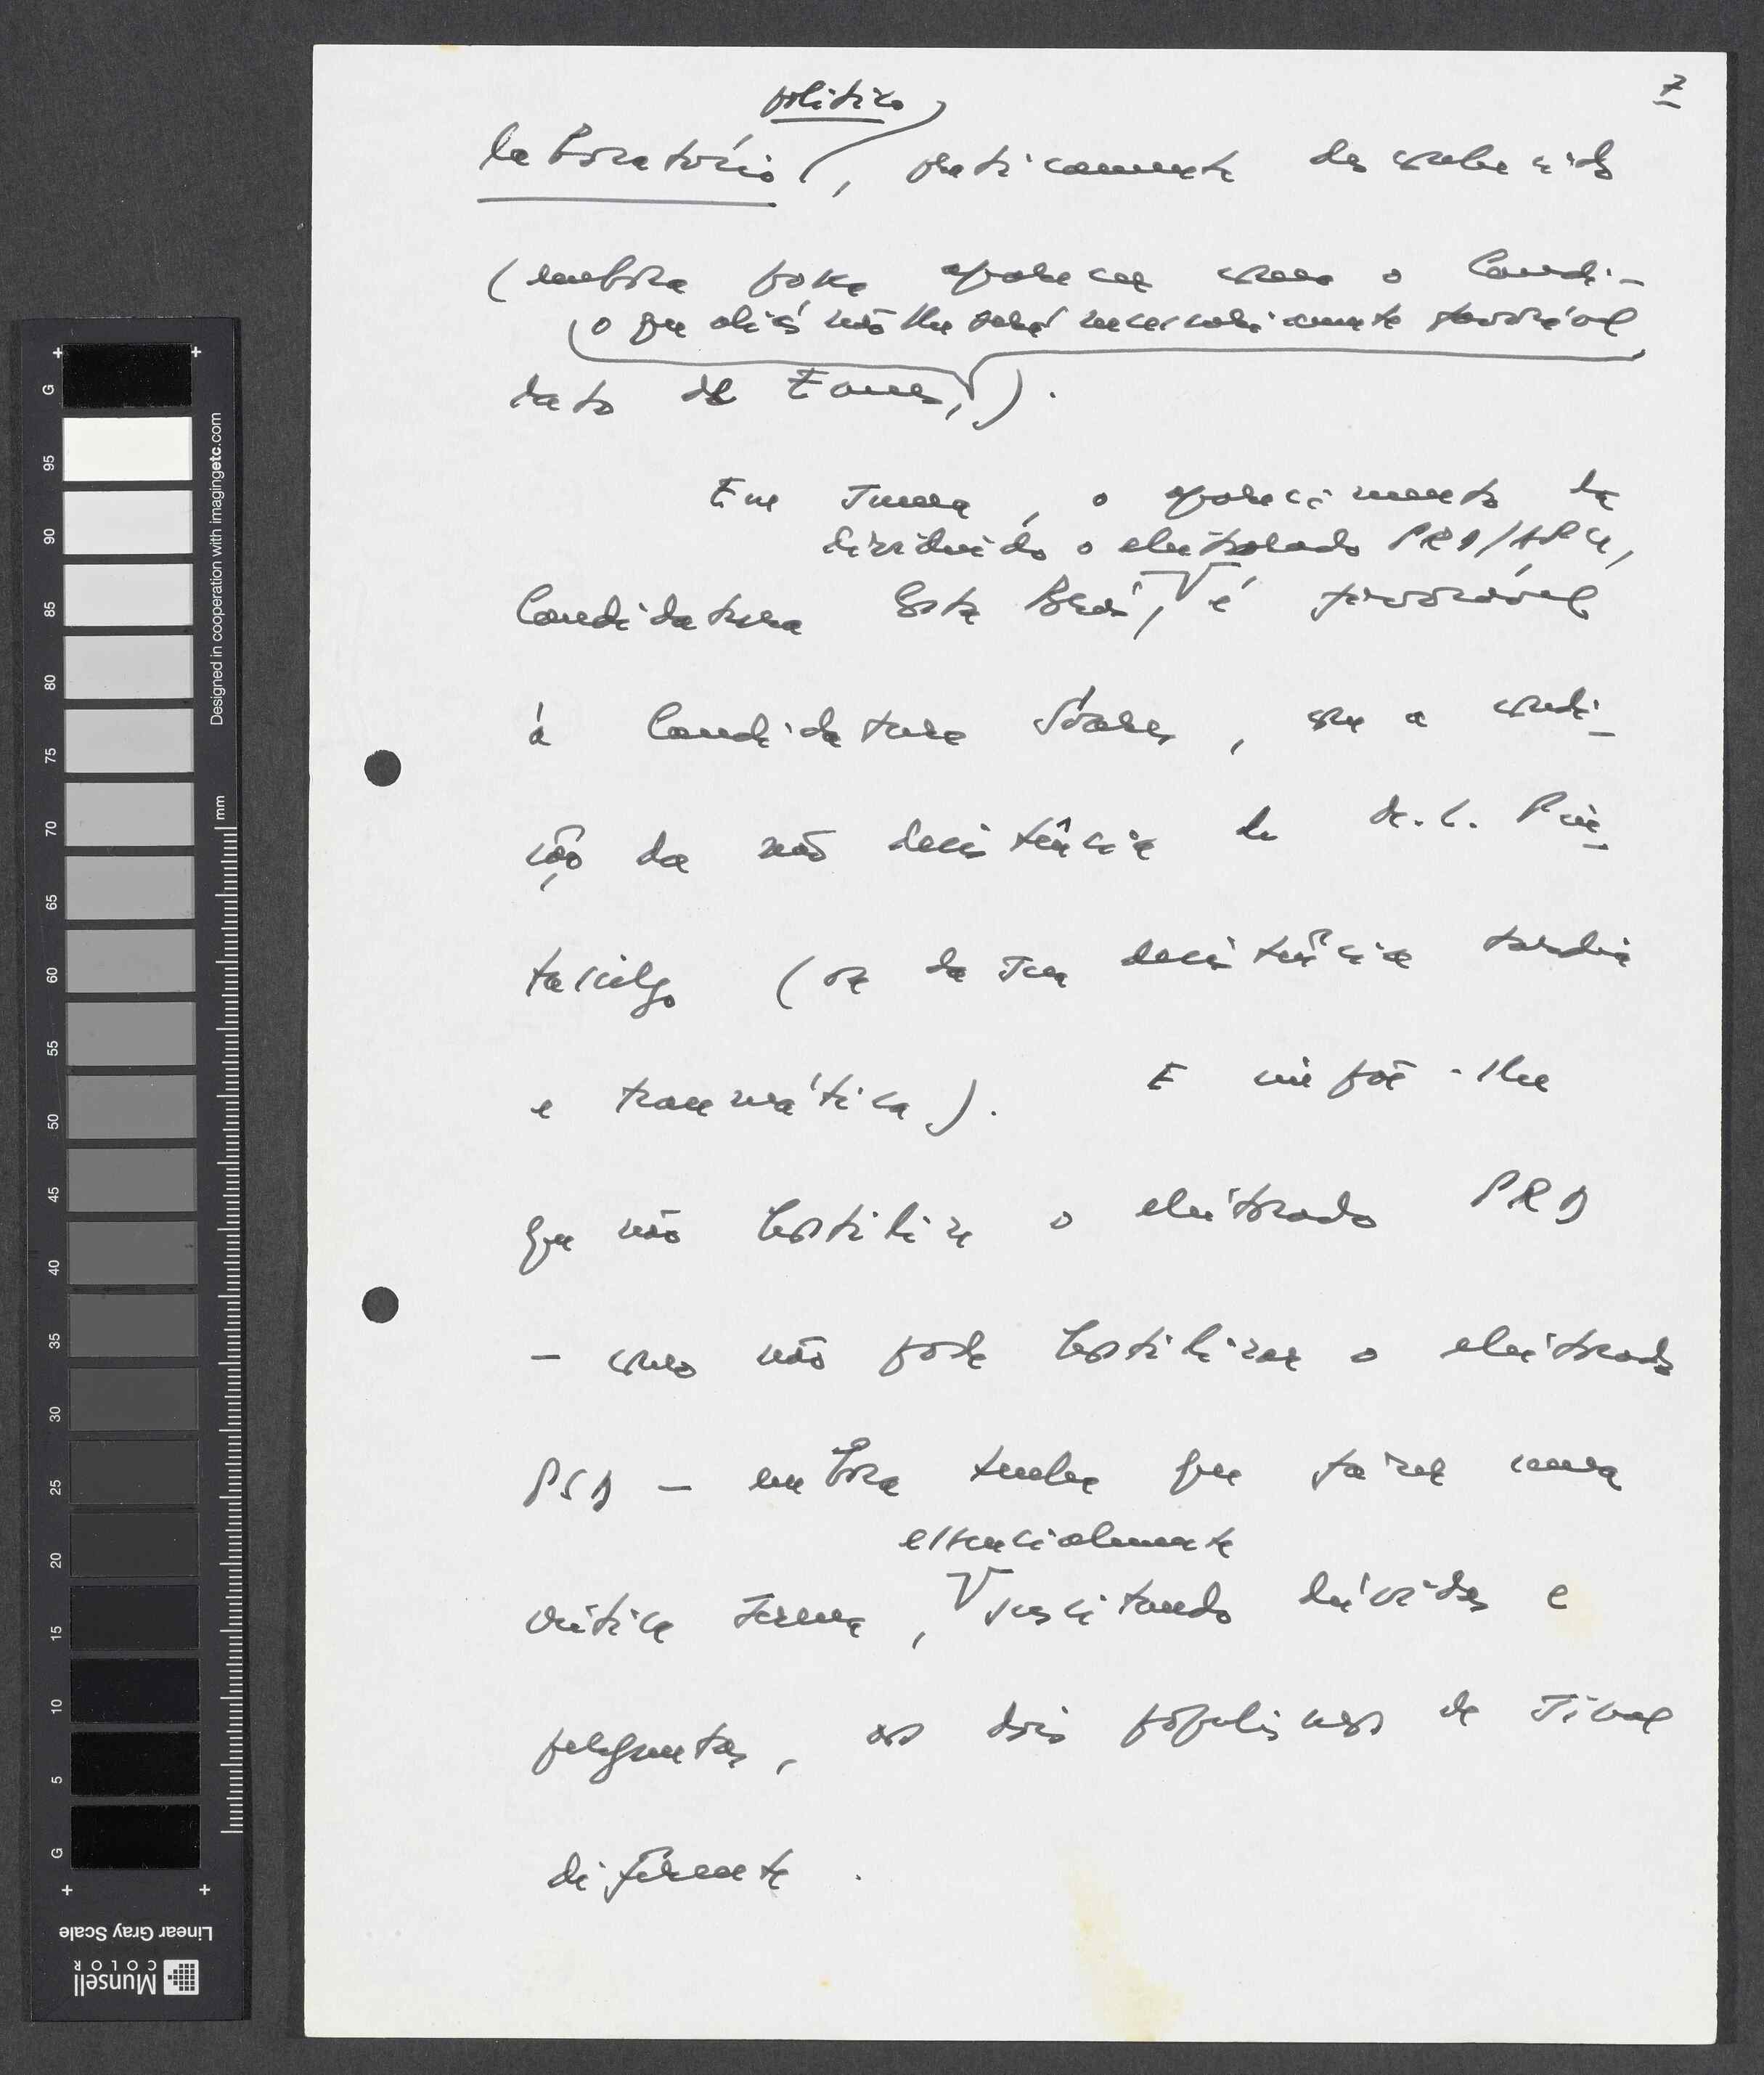 7
político
laboratório, praticamente desconhecido
(embora possa aparecer como o candi-
o que aliás não lhe será necessariamente favorável
dato de Eanes,).
Em suma, o aparecimento da
dividindo o eleitorado PRD/APU,
Candidatura Costa Brás, é favorável
à Candidatura Soares, com a condi-
ção da não desistência de M. L. Pin-
tasilgo (ou da sua desistência tardia
e traumática). E impõe-lhe
que não hostilize o eleitorado PRD
- como não pode hostilizar o eleitorado
PSD - embora tenha que fazer uma
essencialmente
crítica serena, suscitando dúvidas e
perguntas, aos dois populismos de sinal
diferente.
+ +
G
95
90
85
80
75
70
65
60
55
50
45
40
35
30
25
20
15
10
5
G
+ +
mm
Designed in cooperation with imagingetc.com
Linear Gray Scale
Munsell
COLOR